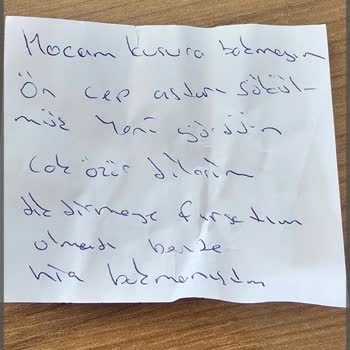 Hocam kusura bakmayın
Ön cep astarı sökül-
müş yeni gördüm
Çok özür dilerim
diktirmeye fırsatım
olmadı bende
hiç bakmamıştım